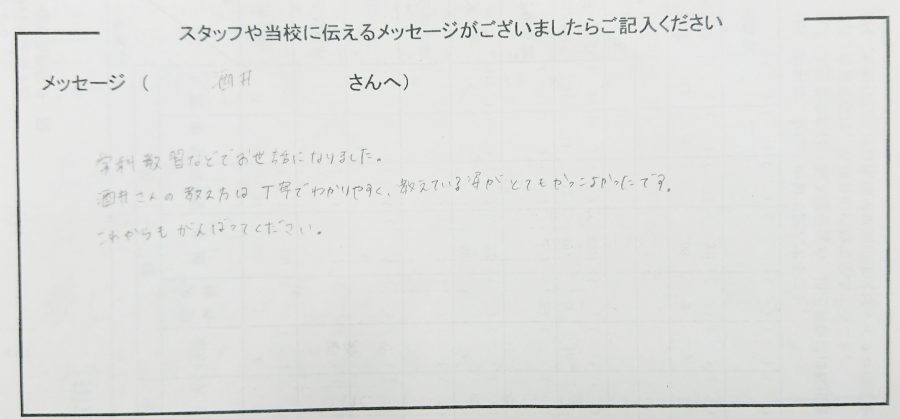 スタッフや当校に伝えるメッセージがございましたらご記入ください
メッセージ（ 酒井 さんへ）
学科教習などでお世話になりました。
酒井さんの教え方は丁寧でわかりやすく、教えている姿がとてもかっこよかったです。
これからもがんばってください。